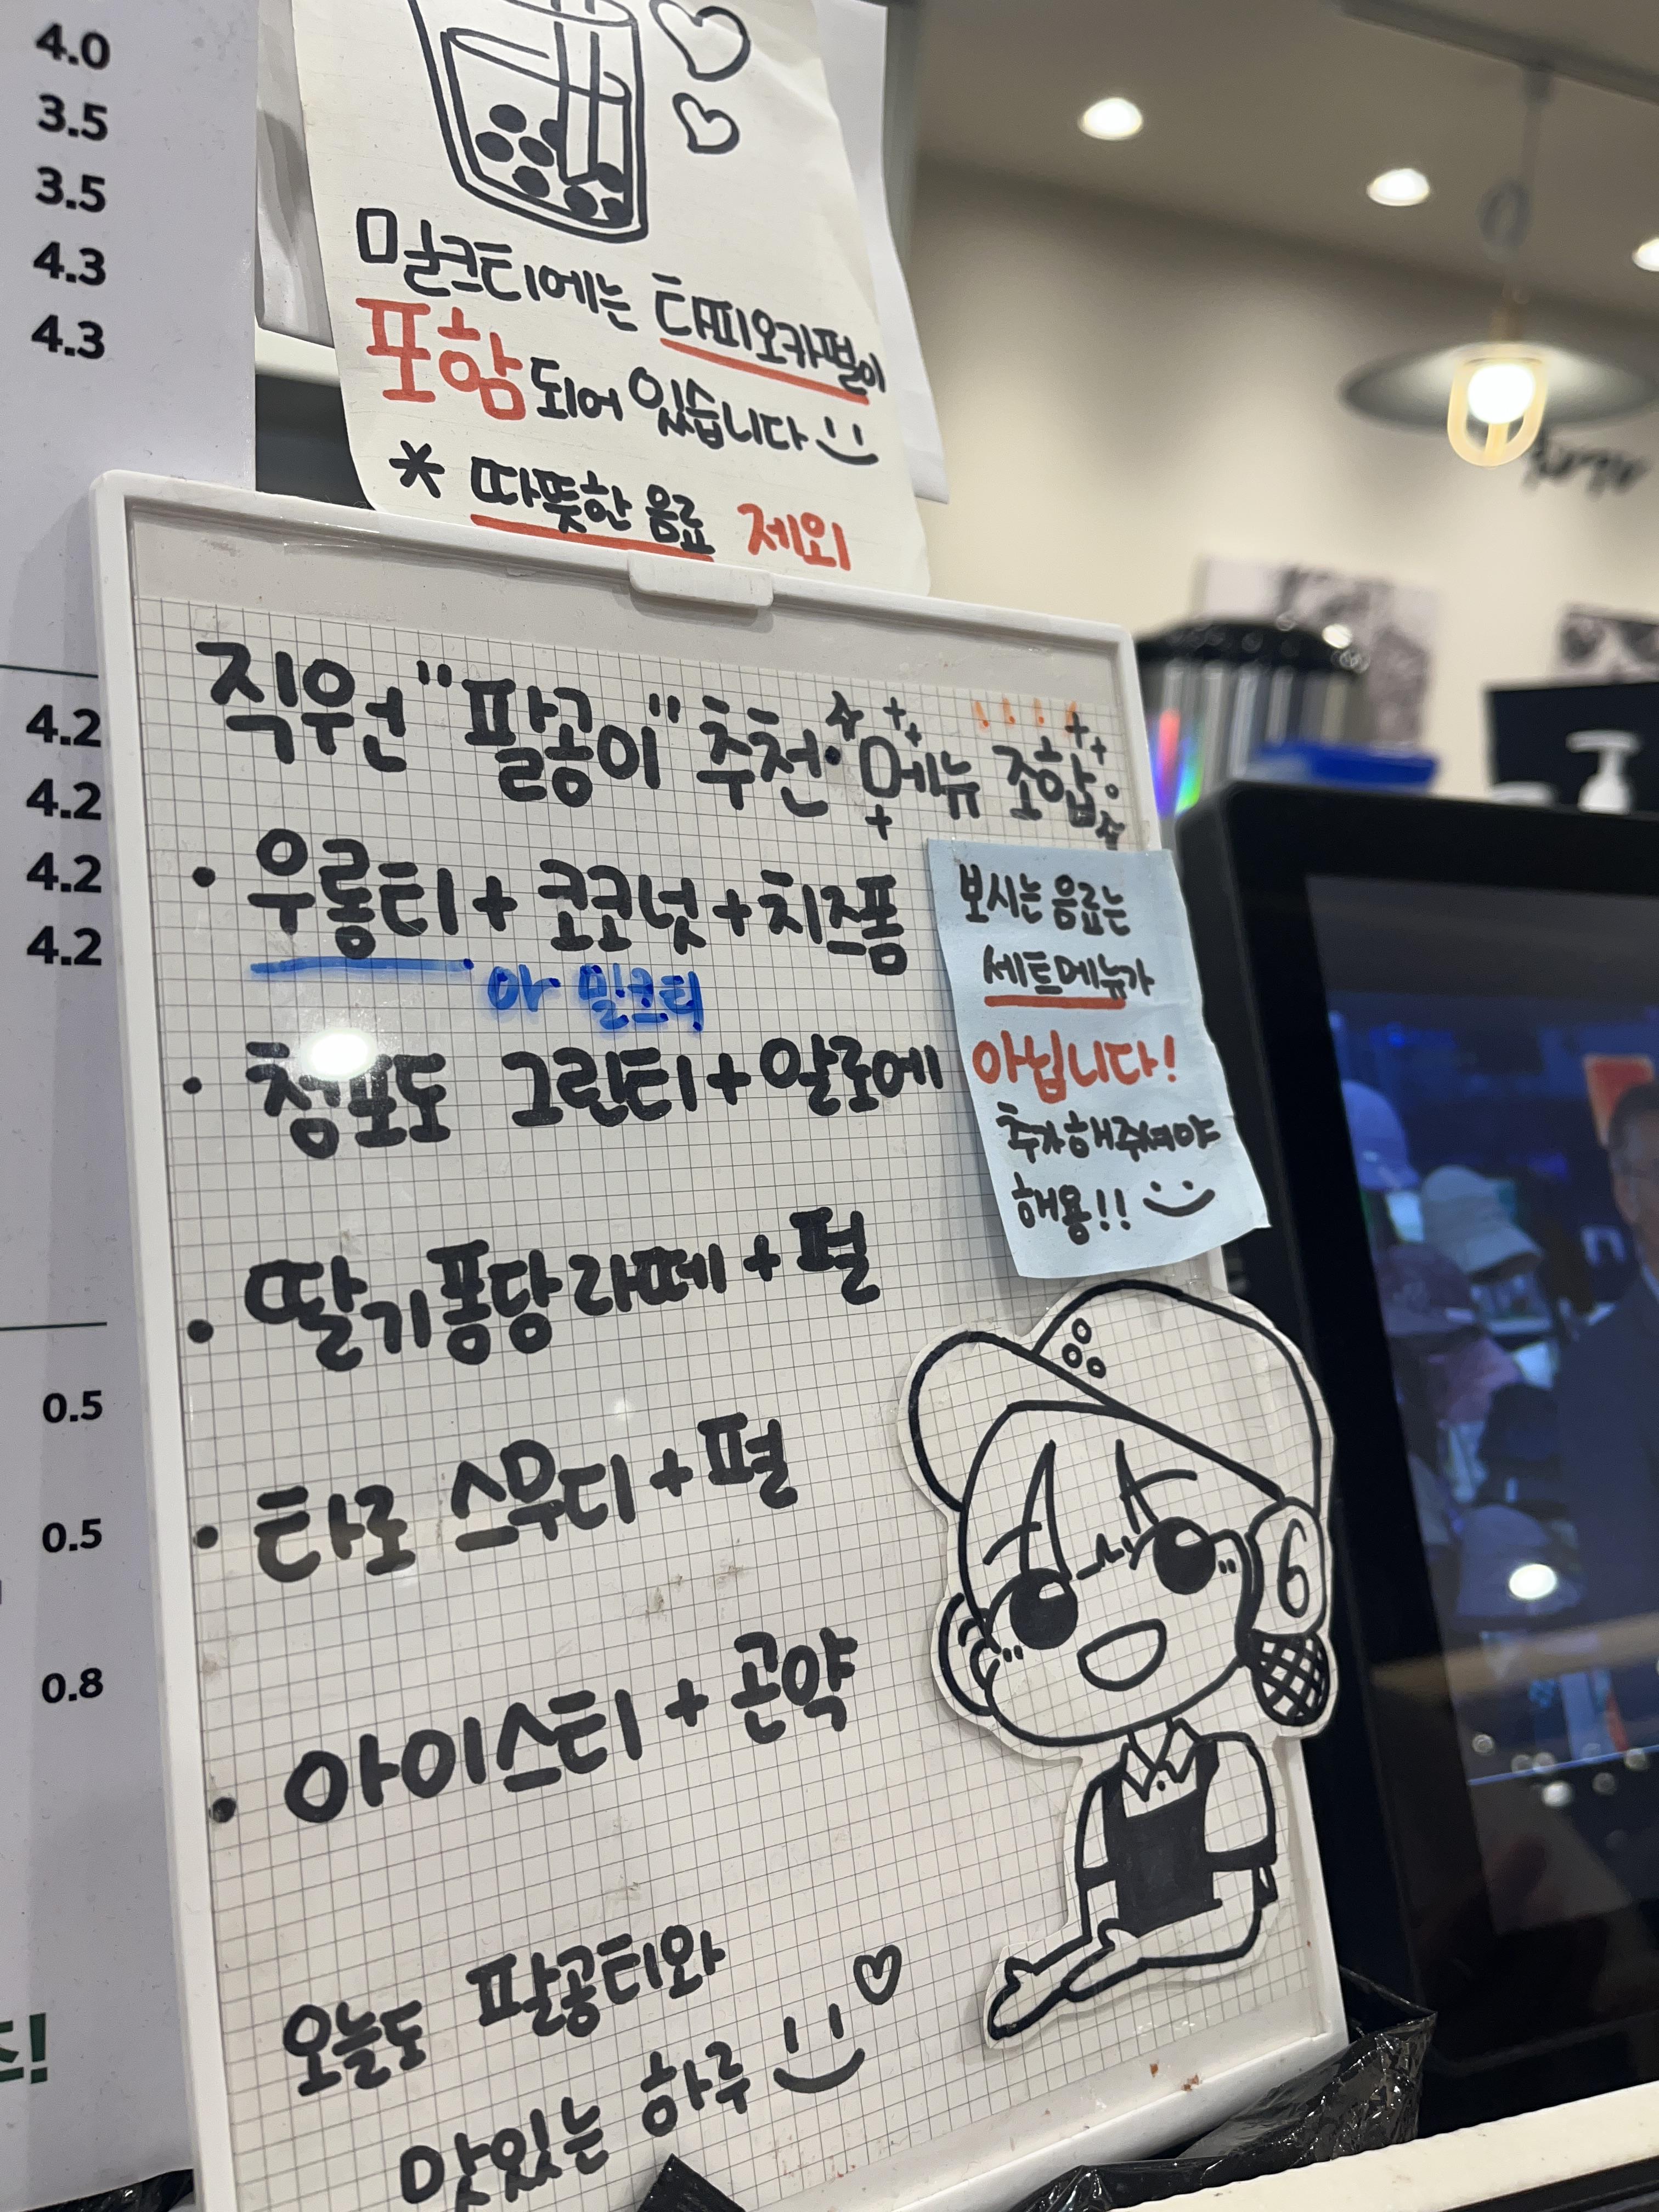 4.0
3.5
3.5
4.3
4.3
4.2
4.2
4.2
4.2
0.5
0.5
0.8
밀크티에는 타피오카펄이
포함되어 있습니다
* 따뜻한 음료 제외
직원 "팔공이" 추천 메뉴 조합
• 우롱티 + 코코넛 + 치즈폼
or 밀크티
• 청포도 그린티 + 알로에
• 딸기퐁당라떼 + 펄
• 타로 스무디 + 펄
• 아이스티 + 곤약
오늘도 팔공티와
맛있는 하루
보시는 음료는
세트메뉴가
아닙니다!
추가해주셔야
해용!!
6